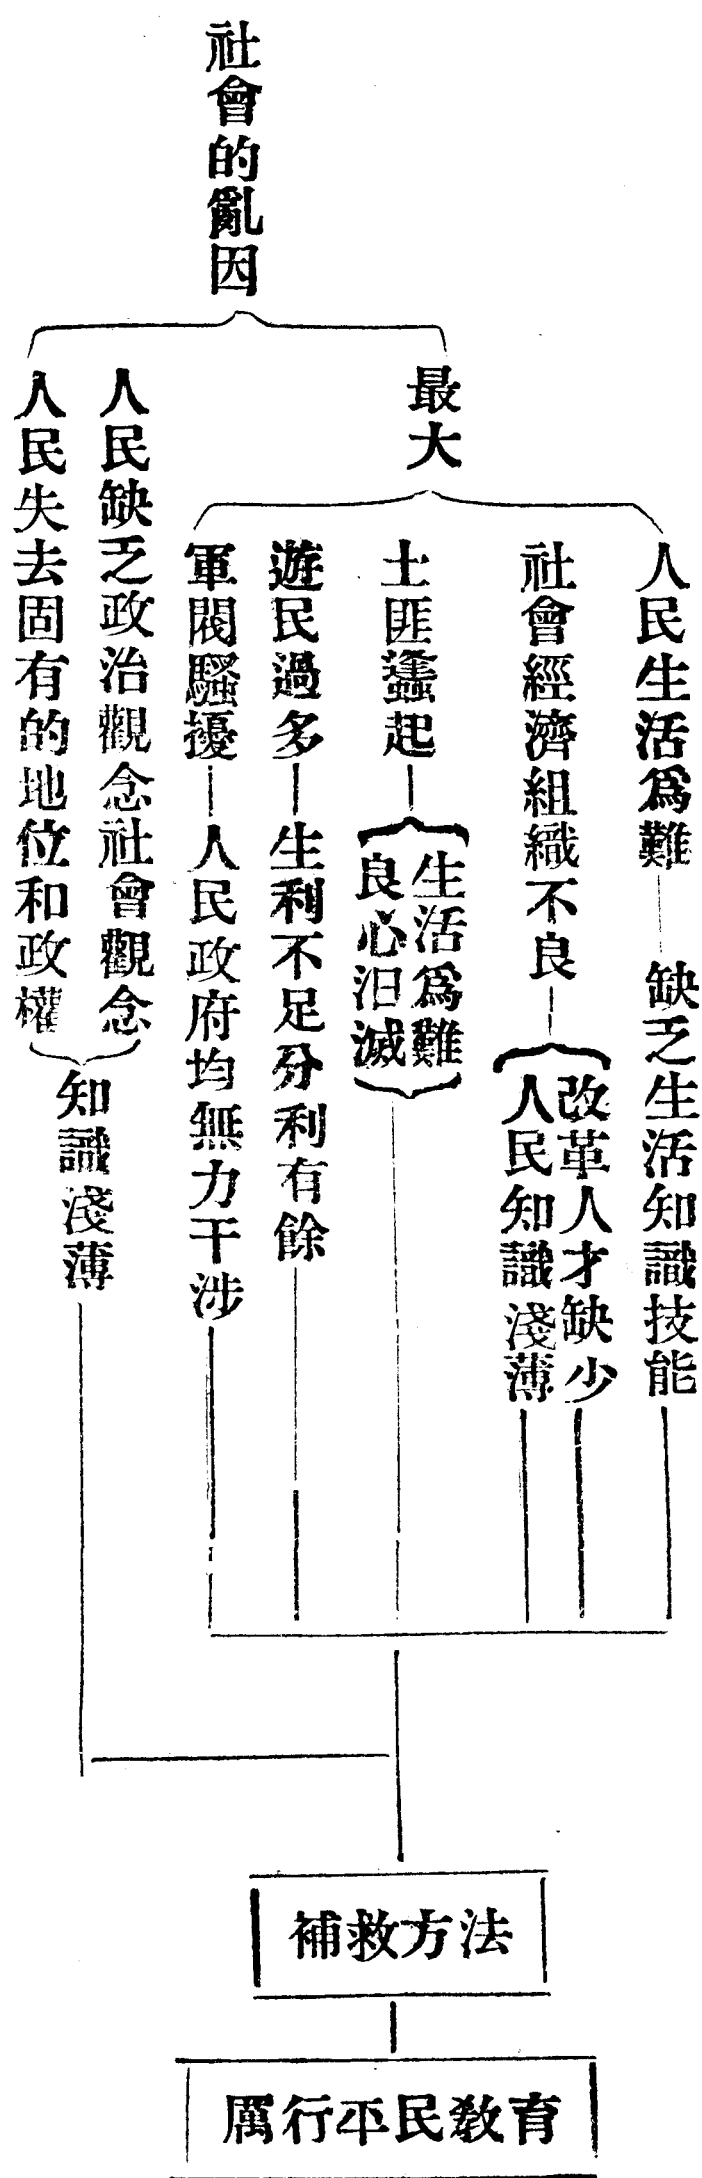 社會的亂因
最大
人民生活爲難
缺乏生活知識技能
社會經濟組織不良
改革人才缺少
人民知識淺薄
土匪蠭起
生活爲難
良心汩滅
遊民過多
生利不足分利有餘
軍閥騷擾
人民政府均無力干涉
人民缺乏政治觀念社會觀念
人民失去固有的地位和政權
知識淺薄
補救方法
厲行平民教育